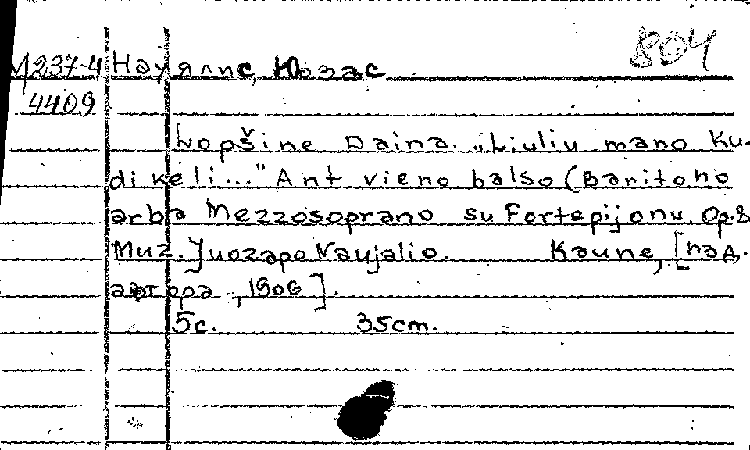 804
М237-4 Науялис, Юозас
4409
Lopšine Daina. „Liuliu mano Ku-
dikeli..." Ant vieno balso (Baritono
arba Mezzosoprano su Fortepijonu. Op.8
Muz. Juozapo Naujalio. Kaune, [изд.
автора, 1906].
5с. 35cm.